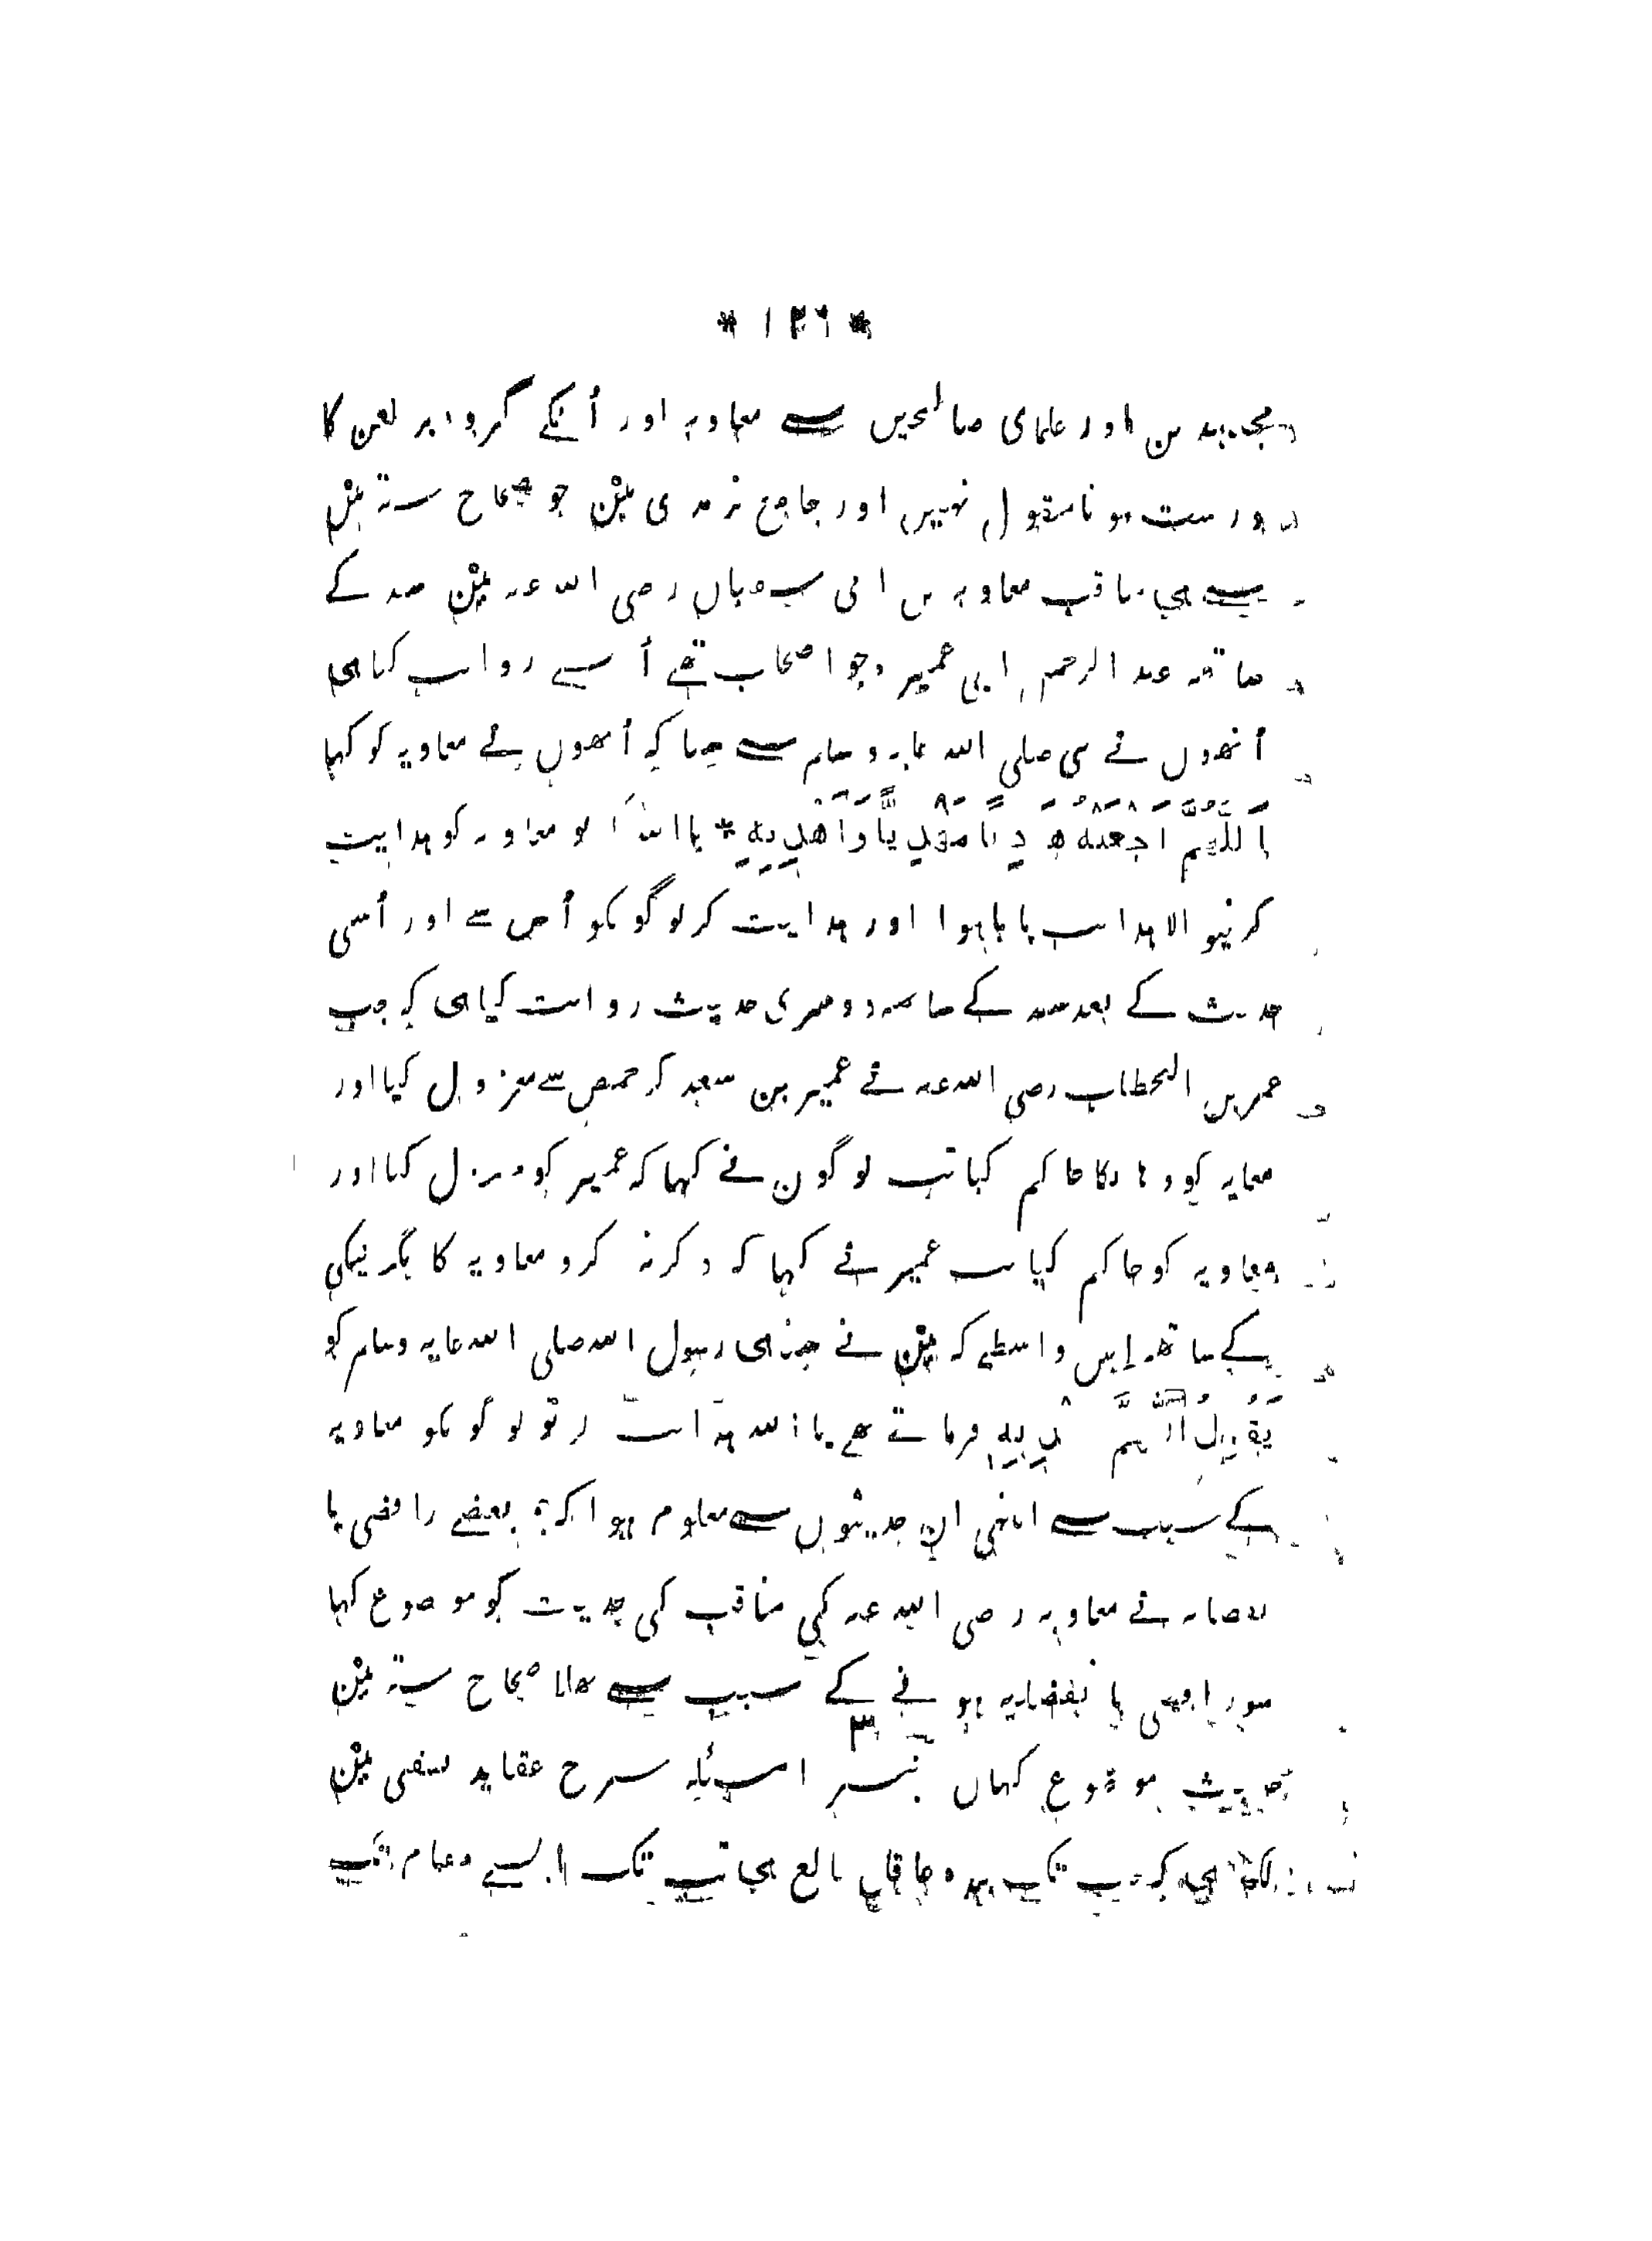 * ۱۲۶ *
مجتہدین اور علمای صالحین سے معاویہ اور اُنکے گروہ پر لعن کا
درست ہونا منقول نہیں اور جامع ترمذی میں جو صحاح ستہ میں
سے ہی مناقب معاویہ بن ابی سفیان رضی اللہ عنہ میں سند کے
ساتھ عبد الرحمن ابی عمیر جو اصحاب تھے اُسے روایت کیا ہی
اُنھوں نے نبی صلی اللہ علیہ وسلم سے کہ اُنھوں نے معاویہ کو کہا
اَللّٰهُمَّ اجْعَلْهُ هَادِيًا مَهْدِيًّا وَاهْدِ بِهِ * یا اللہ تو معاویہ کو ہدایت
کرنیوالا ہدایت پایا ہوا اور ہدایت کر لوگوںکو اُس سے اور اُسی
حدیث کے بعد سند کے ساتھ دوسری حدیث روایت کیا ہی کہ جب
عمر بن الخطاب رضی اللہ عنہ نے عمیر بن سعید کو حمص سے معزول کیا اور
معایہ کو وہانکا حاکم کیا تب لوگون نے کہا کہ عمیر کو معزول کیا اور
معاویہ کو حاکم کیا تب عمیر نے کہا کہ ذکر نہ کرو معاویہ کا مگر نیکی
کے ساتھ اِس واسطے کہ میں نے سنا ہی رسول اللہ صلی اللہ علیہ وسلم کو
يَقُولُ اَللّٰهُمَّ اهْدِ بِهِ فرماتے تھے یا اللہ ہدایت کر تو لوگونکو معاویہ
کے سبب سے انتہی ان حدیثوں سے معلوم ہوا کہ بعضے رافضی یا
تفضیلیہ نے معاویہ رضی اللہ عنہ کی مناقب کی حدیث کو موضوع کہا
سو رافضی یا تفضلیہ ہونے کے سبب سے بھلا صحاح ستہ میں
حدیث موضوع کہاں تیسرا مسئلہ شرح عقاید نسفی میں
لکھا ہی کہ جب تک بندہ عاقل بالغ ہی تب تک ایسے مقام تک